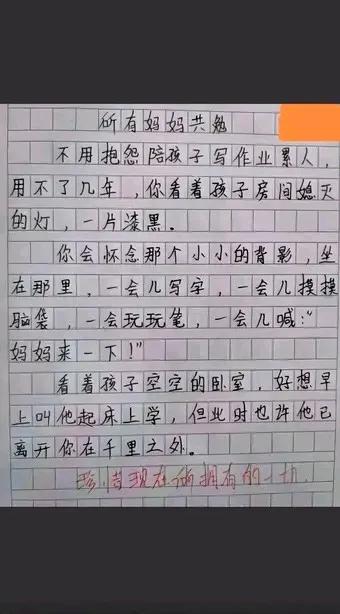 所有妈妈共勉
不用抱怨陪孩子写作业累人，
用不了几年，你看着孩子房间熄灭
的灯，一片漆黑。
你会怀念那个小小的背影，坐
在那里，一会儿写字，一会儿摸摸
脑袋，一会玩玩笔，一会儿喊："
妈妈来一下！"
看着孩子空空的卧室，好想早
上叫他起床上学，但此时也许他已
离开你在千里之外。
珍惜现在所拥有的一切.